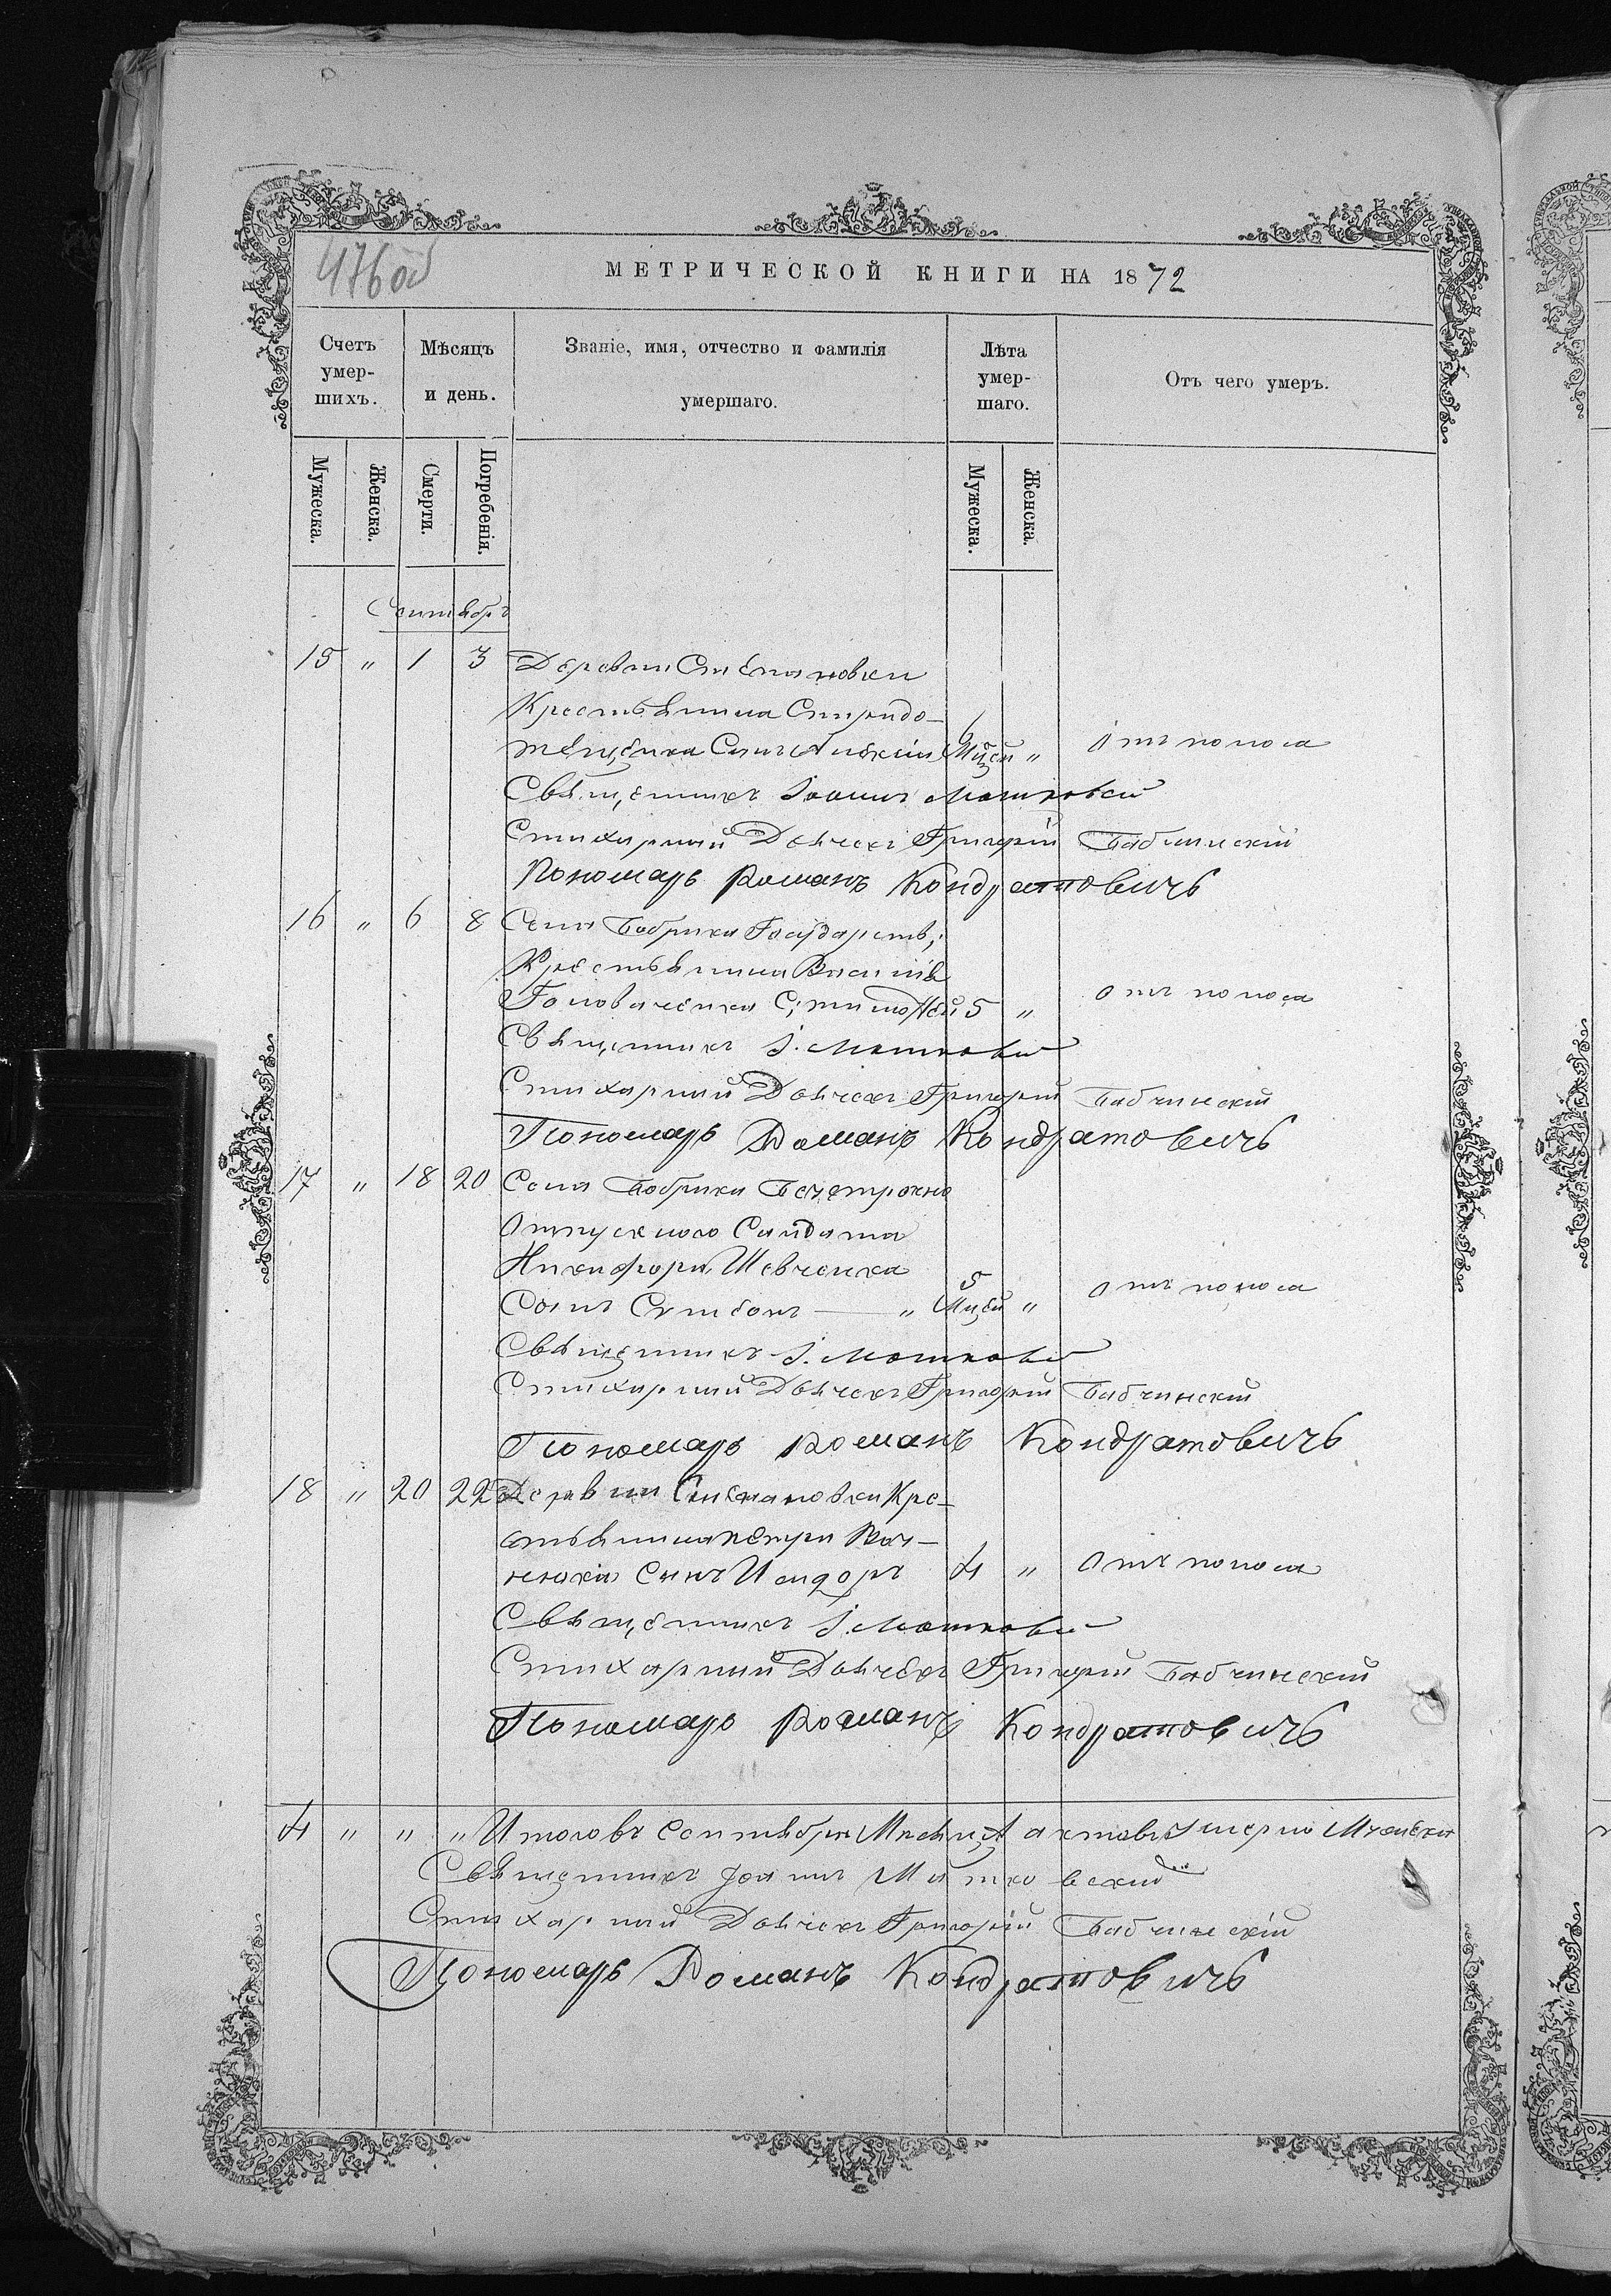 476 об
МЕТРИЧЕСКОЙ КНИГИ НА 1872
Счетъ умер-шихъ.
Мѣсяцъ и день.
Званіе, имя, отчество и фамилія умершаго.
Лѣта умер-шаго.
Отъ чего умеръ.
Мужеска.
Женска.
Смерти.
Погребенія.
Мужеска.
Женска.
Сентябрь
15 " 1 3 Деревни Степановки
Крестьянина Спиридо-
Сынъ Алексій 6 Мцей " Отъ поноса
Священникъ Іоаннъ Матковскій
Стихарный Дьячекъ Григорій Бабчинскій
Пономарь Романъ Кондратовичъ
16 " 6 8 Села Бобрика Государств;
Крестьянина Василія
Головаченка С; Тимофей 5 " Отъ поноса
Священникъ І. Матковскій
Стихарный Дьячекъ Григорій Бабчинскій
Пономарь Романъ Кондратовичъ
17 " 18 20 Села Бобрика Безсрочно
Отпускного Салдата
Никифора Шевченка
Сынъ Симеонъ — " 5 Мцей " Отъ поноса
Священникъ І. Матковскій
Стихарный Дьячекъ Григорій Бабчинскій
Пономарь Романъ Кондратовичъ
18 " 20 22 Деревни Степановки Кре-
стьянина Петра
Сынъ Исидоръ 4 " Отъ поноса
Священникъ І. Матковскій
Стихарный Дьячекъ Григорій Бабчинскій
Пономарь Романъ Кондратовичъ
4 " " " Итого въ Сентябрѣ Мѣсяцѣ умерло Мужеска
Священникъ Іоаннъ Матковскій
Стихарный Дьячекъ Григорій Бабчинскій
Пономарь Романъ Кондратовичъ